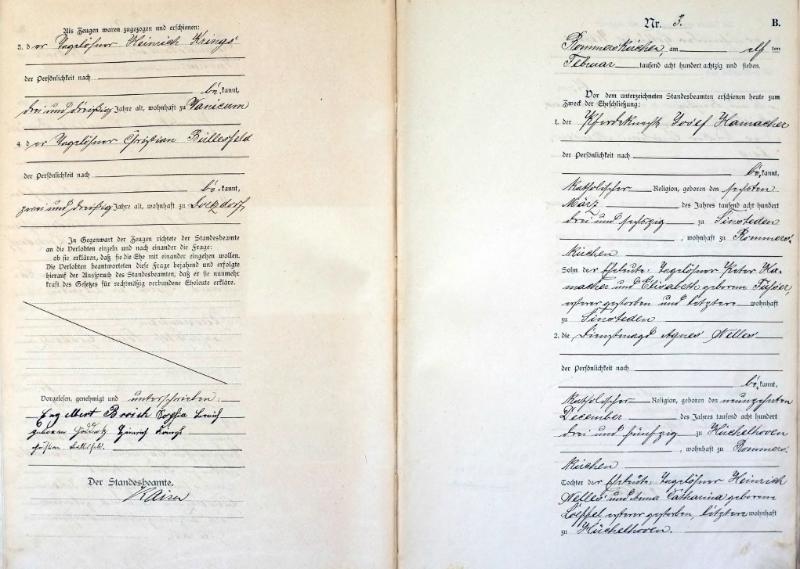 Als Zeugen waren zugezogen und erschienen:
3. der Tagelöhner Heinrich Krings
der Persönlichkeit nach
be kannt,
drei und dreißig Jahre alt, wohnhaft zu Vanicum
4. der Tagelöhner Christian Büllesfeld
der Persönlichkeit nach
be kannt,
zwei und dreißig Jahre alt, wohnhaft zu
In Gegenwart der Zeugen richtete der Standesbeamte
an die Verlobten einzeln und nach einander die Frage:
ob sie erklären, daß sie die Ehe mit einander eingehen wollen.
Die Verlobten beantworteten diese Frage bejahend und erfolgte
hierauf der Ausspruch des Standesbeamten, daß er sie nunmehr
kraft des Gesetzes für rechtmäßig verbundene Eheleute erkläre.
Vorgelesen, genehmigt und unterschrieben:
Sophia
geborene Heinrich Krings
Der Standesbeamte.
Nr. 3. B.
Rommerskirchen, am elf ten
Februar tausend acht hundert achtzig und sieben.
Vor dem unterzeichneten Standesbeamten erschienen heute zum
Zweck der Eheschließung:
1. der Pferdeknecht Josef Hamacher
der Persönlichkeit nach
be kannt,
katholischer Religion, geboren den sechsten
März des Jahres tausend acht hundert
drei und sechszig zu Sinsteden
, wohnhaft zu Rommers
kirchen
Sohn der Eheleute: Tagelöhner Peter Ha
macher und Elisabeth geborene
ersterer gestorben und letztere wohnhaft
zu Sinsteden
2. die Dienstmagd Agnes Welles
der Persönlichkeit nach
be kannt,
katholischer Religion, geboren den neunzehnten
December des Jahres tausend acht hundert
drei und fünfzig zu Hüchelhoven
, wohnhaft zu Rommers
kirchen
Tochter der Eheleute: Tagelöhner Heinrich
Welles und Anna Catharina geborene
ersterer gestorben, letztere wohnhaft
zu Hüchelhoven.